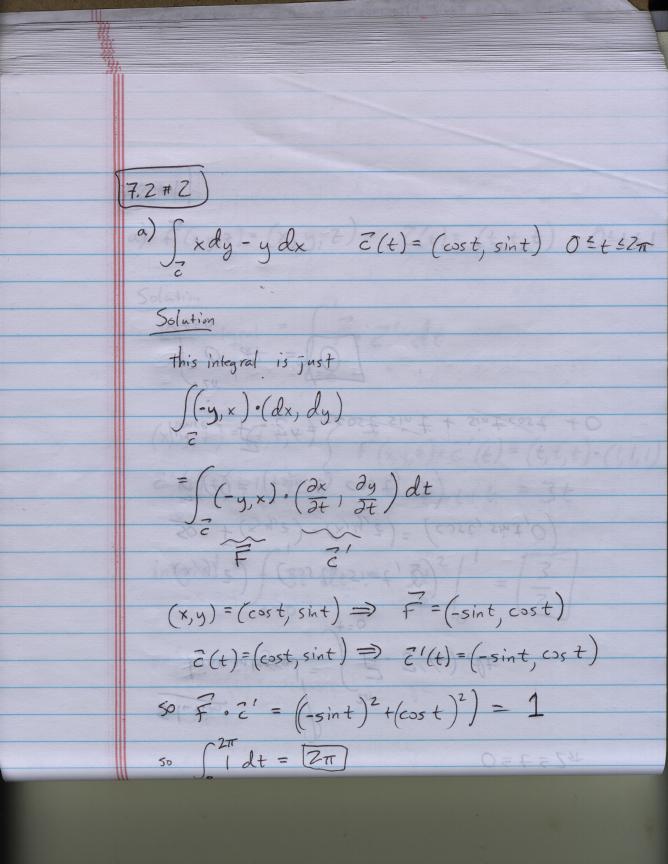 7.2 # 2
a) ∫_c⃗ x dy - y dx   c⃗(t) = (cos t, sin t)   0 ≤ t ≤ 2π
Solution
this integral is just
∫_c⃗ (-y, x) · (dx, dy)
= ∫_c⃗ (-y, x) · (∂x/∂t, ∂y/∂t) dt
F⃗   c⃗'
(x, y) = (cos t, sin t) ⇒ F⃗ = (-sin t, cos t)
c⃗(t) = (cos t, sin t) ⇒ c⃗'(t) = (-sin t, cos t)
so F⃗ · c⃗' = ((-sin t)² + (cos t)²) = 1
so ∫₀^2π 1 dt = 2π